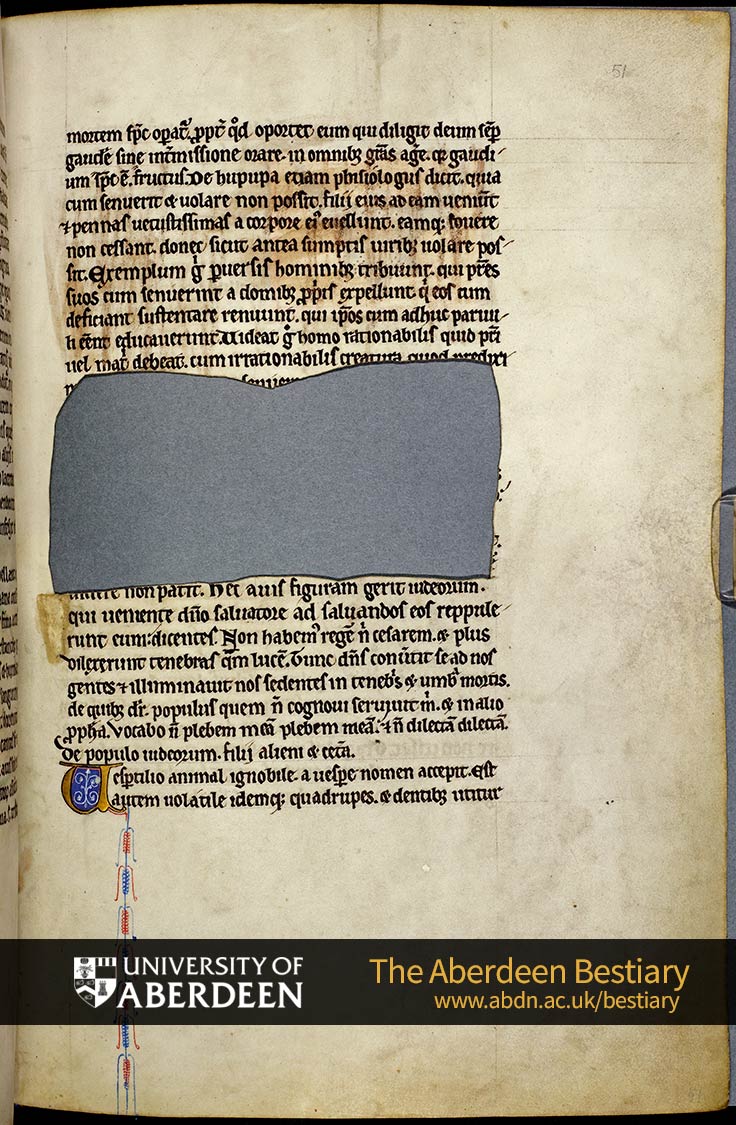 51
mortem sp̄c op̄at᷑. ꝓpt̄ qd̄ oportet eum qui diligit deum sēp
gaudē sine int̄missione orare. in omnibꝫ gr̄as aḡe. qꝛ gaudi
um sp̄c ē. fructus. De hupupa etiam phisiologus dicit. quia
cum senuerit ⁊ uolare non possit. filij eius ad eam ueniūt
⁊ pennas uetustissimas a corpore eiꝰ euellunt. eamqꝫ fouere
non cessant. donec sicut antea sumptis uiribꝫ uolare pos
sit. Exemplum g̊ ꝑuersis hominibꝫ tribuunt. qui pr̄es
suos cum senuerint a domibꝫ ꝓpis expellunt. q̇ eos cum
deficiant sustentare renuunt. qui ip̄os cum adhuc paruu
li eēnt educauerunt. Uideat g̊ homo rationabilis quid pr̄i
uel mat̄ debeat. cum irrationabilis creatura quod predixi
non patit᷑. Hec auis figuram gerit iudeorum.
qui ueniente dn̄o saluatore ad saluandos eos reppule
runt eum: dicentes. Non habemꝰ regē n̄ cesarem. ⁊ plus
dilexerunt tenebras qm̄ lucē. Tunc dn̄s conūtit se ad nos
gentes ⁊ illuminauit nos sedentes in tenebris ⁊ umb̄ mortis.
de quibꝫ dr̄. populus quem n̄ cognoui seruiuit m̄. ⁊ in alio
ꝓpha. Vocabo n̄ plebem meā plebem meā. ⁊ n̄ dilectā dilectā.
De populo iudeorum. filij alieni ⁊ cet̄a.
Vesꝑtilio animal ignobile. a uesꝑe nomen accepit. Est
autem uolatile idemqꝫ quadrupes. ⁊ dentibꝫ utitur
UNIVERSITY OF
ABERDEEN
The Aberdeen Bestiary
www.abdn.ac.uk/bestiary